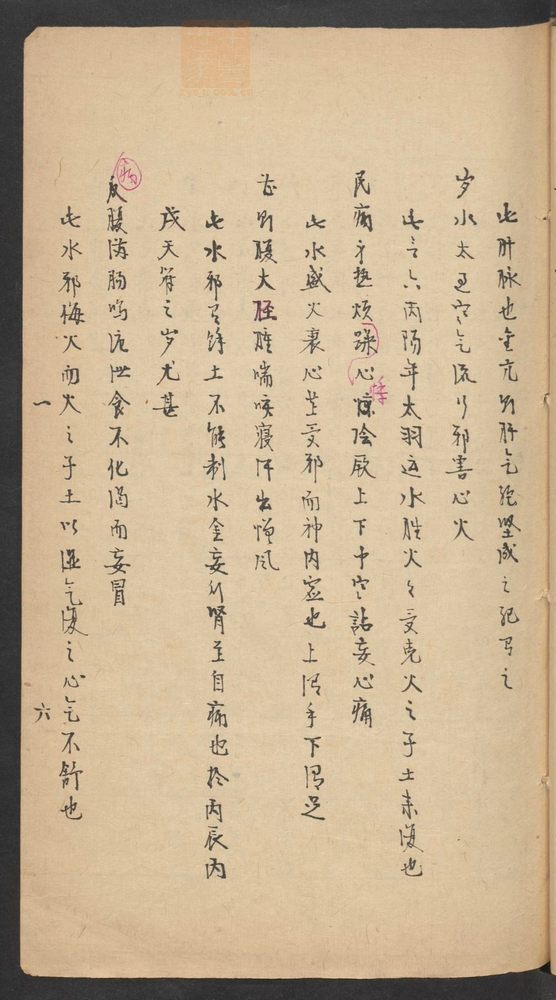 此肝脉也金亢则肝气绝坚成之纪有之
岁水太过寒气流行邪害心火
此言六丙阳年太羽运水胜火火受克火之子土来复也
民病身热烦躁心悸阴厥上下中寒谵妄心痛
此水盛火衰心益受邪而神内寇也上谓手下谓足
甚则腹大胫肿喘咳寝汗出憎风
此水邪有馀土不能制水金妄行肾益自病也於丙辰丙
戌天符之岁尤甚
病反腹满肠鸣溏泄食不化渴而妄冒
此水邪侮火而火之子土以湿气复之心气不舒也
一 六